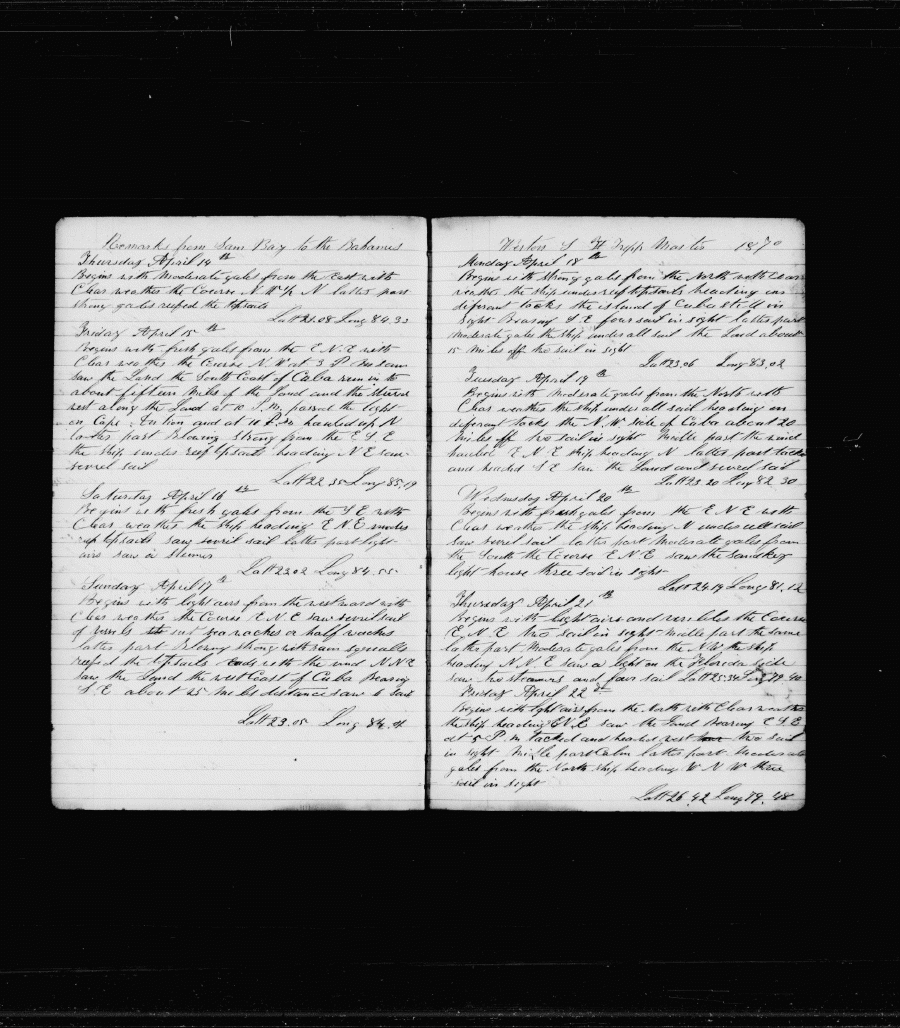 Remarks from Sam Bay to the Bahamas
Thursday April 14th
Begins with Moderate gales from the East with
Clear weather the Course N W 1/2 N latter part
strong gales reefed the topsails
Latt 21.08 Long 84.33
Friday April 15th
Begins with fresh gales from the E.N.E with
Clear weather the Course N. W at 3 P.M
saw the Land the South Coast of Cuba run in to
about fifteen Miles of the Land and the
west along the Land at 10 P.M. passed the light
on Cape and at 10 P.M hauled up N
latter part Blowing Strong from the E S E
the ship under reef topsails heading N E saw
severil sail
Latt 22 35 Long 85.19
Saturday April 16th
Begins with fresh gales from the S E with
Clear weather the ship heading E N E under
topsails saw sevril sail latter part light
airs saw a
Latt 23 02 Long 84.55
Sunday April 17th
Begins with light airs from the westward with
Clear weather the Course E N E saw sevril sail
of
latter part blowing strong with rain squalls
reefed the topsails Ends with the wind N N E
saw the Land the west Coast of Cuba Bearing
S. E. about 25 Miles distance saw 6 Sail
Latt 23.05 Long 84.
Weston S Tripp Master 1870
Monday April 18th
Begins with strong gales from the North with Clear
weather the ship under reef topsails heading on
diferent tacks the island of Cuba still in
sight Bearing S. E four sail in sight latter part
Moderate gales the ship under all sail the Land about
15 Miles off the sail in sight
Latt 23.06 Long 83,02
Tuesday April 19th
Begins with Moderate gales from the North with
Clear weather the ship under all sail heading on
diferent tacks the N.W side of Cuba about 20
Miles off two sail in sight Middle part the wind
hauled E. N. E ship heading N latter part tacked
and headed S E saw the Land and sevril sail
Latt 23.20 Long 82.30
Wednesday April 20th
Begins with fresh gales from the E N E with
Clear weather the ship heading N under all sail
saw sevril sail latter part Moderate gales from
the South the Course E N.E saw the Sandkey
light house three sail in sight
Latt 24.19 Long 81.12
Thursday April 21th
Begins with light airs and the Course
E, N, E two sail in sight Middle part the same
latter part Moderate gales from the N W the ship
heading N. N. E saw a light on the Floreda side
saw two steamers and four sail Latt 25.34 Long 79 40
Friday April 22
Begins with light airs from the North with Clear weather
the ship heading E N. E saw the Land Bearing E S E
at 5 P.M tacked and headed west two sail
in sight Middle part Calm latter part Moderate
gales from the North ship heading W N W three
sail in sight
Latt 26.42 Long 79.48